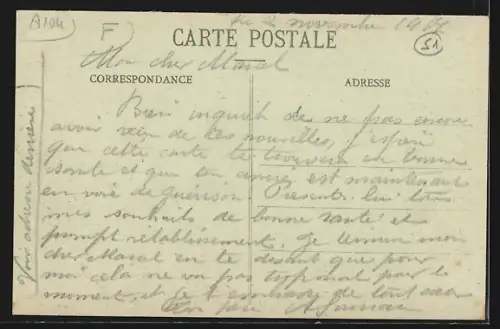 A104
F
le 2 novembre 19
CARTE POSTALE
51
Mon cher Marcel
CORRESPONDANCE
ADRESSE
Bien inquiet de ne pas encore
avoir reçu de tes nouvelles, j'espère
que cette carte te trouvera en bonne
santé et que ton ami est maintenant
en voie de guérison. Présente lui tous
mes souhaits de bonne santé et
prompt rétablissement. Je termine mon
cher Marcel en te disant que pour
moi cela ne va pas trop mal pour le
moment, et je t'embrasse de tout cœur
Ton père
Voir adresse dernière